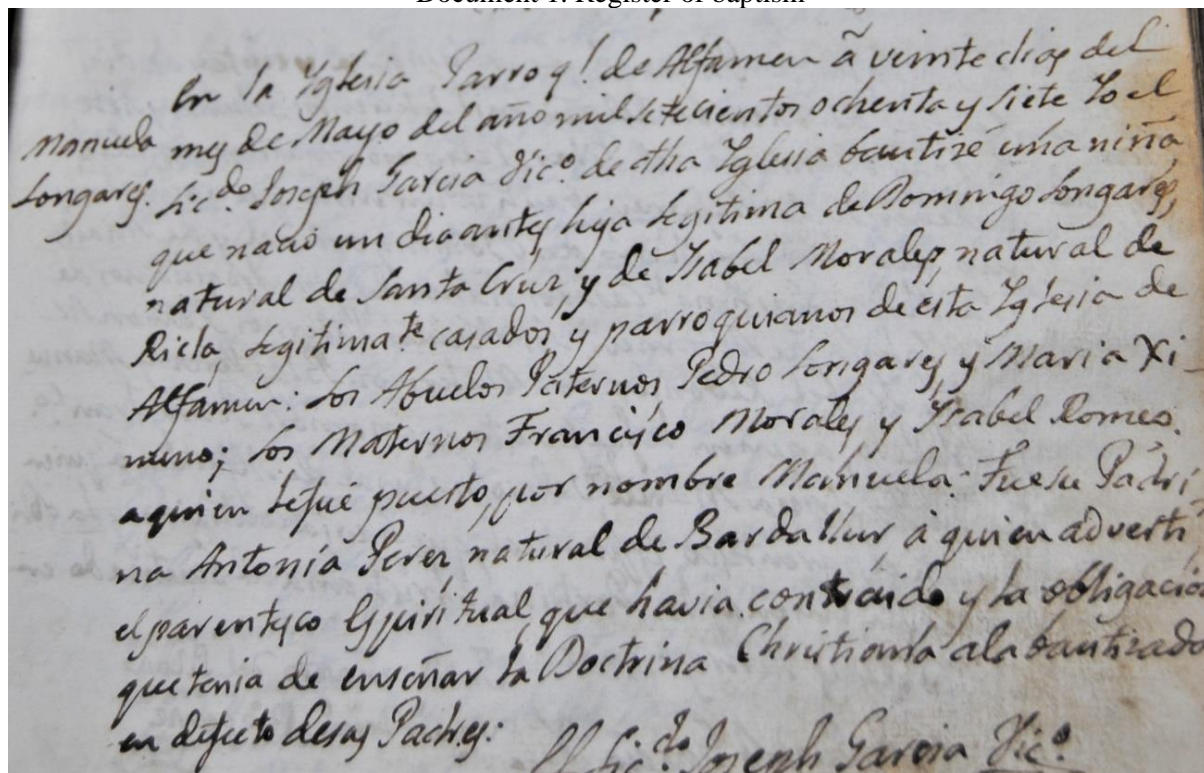 Document 1. Register of baptism
En la Yglesia Parroql. de Alfamen â veinte dias del
Manuela
Longares.
mes de Mayo del año mil setecientos ochenta y siete Yo el
Licdo. Joseph Garcia Vico. de dha Yglesia bautizé una niña,
que nacio un dia antes hija legitima de Domingo Longares,
natural de Santa Cruz, y de Ysabel Morales, natural de
Ricla, legitimate casados, y parroquianos de esta Yglesia de
Alfamen: Los Abuelos Paternos, Pedro Longares, y Maria Xi-
meno; Los Maternos Francisco Morales y Ysabel Romeo.
a quien le fué puesto, por nombre Manuela: Fue su Padri
na Antonia Perez natural de Bardallur â quien adverti
el parentesco Espiritual, que havia contraido y la obligacion
que tenia de enseñar la Doctrina Christiana ala bautizada
en defecto de sus Padres:
El Licdo. Joseph Garcia Vico.